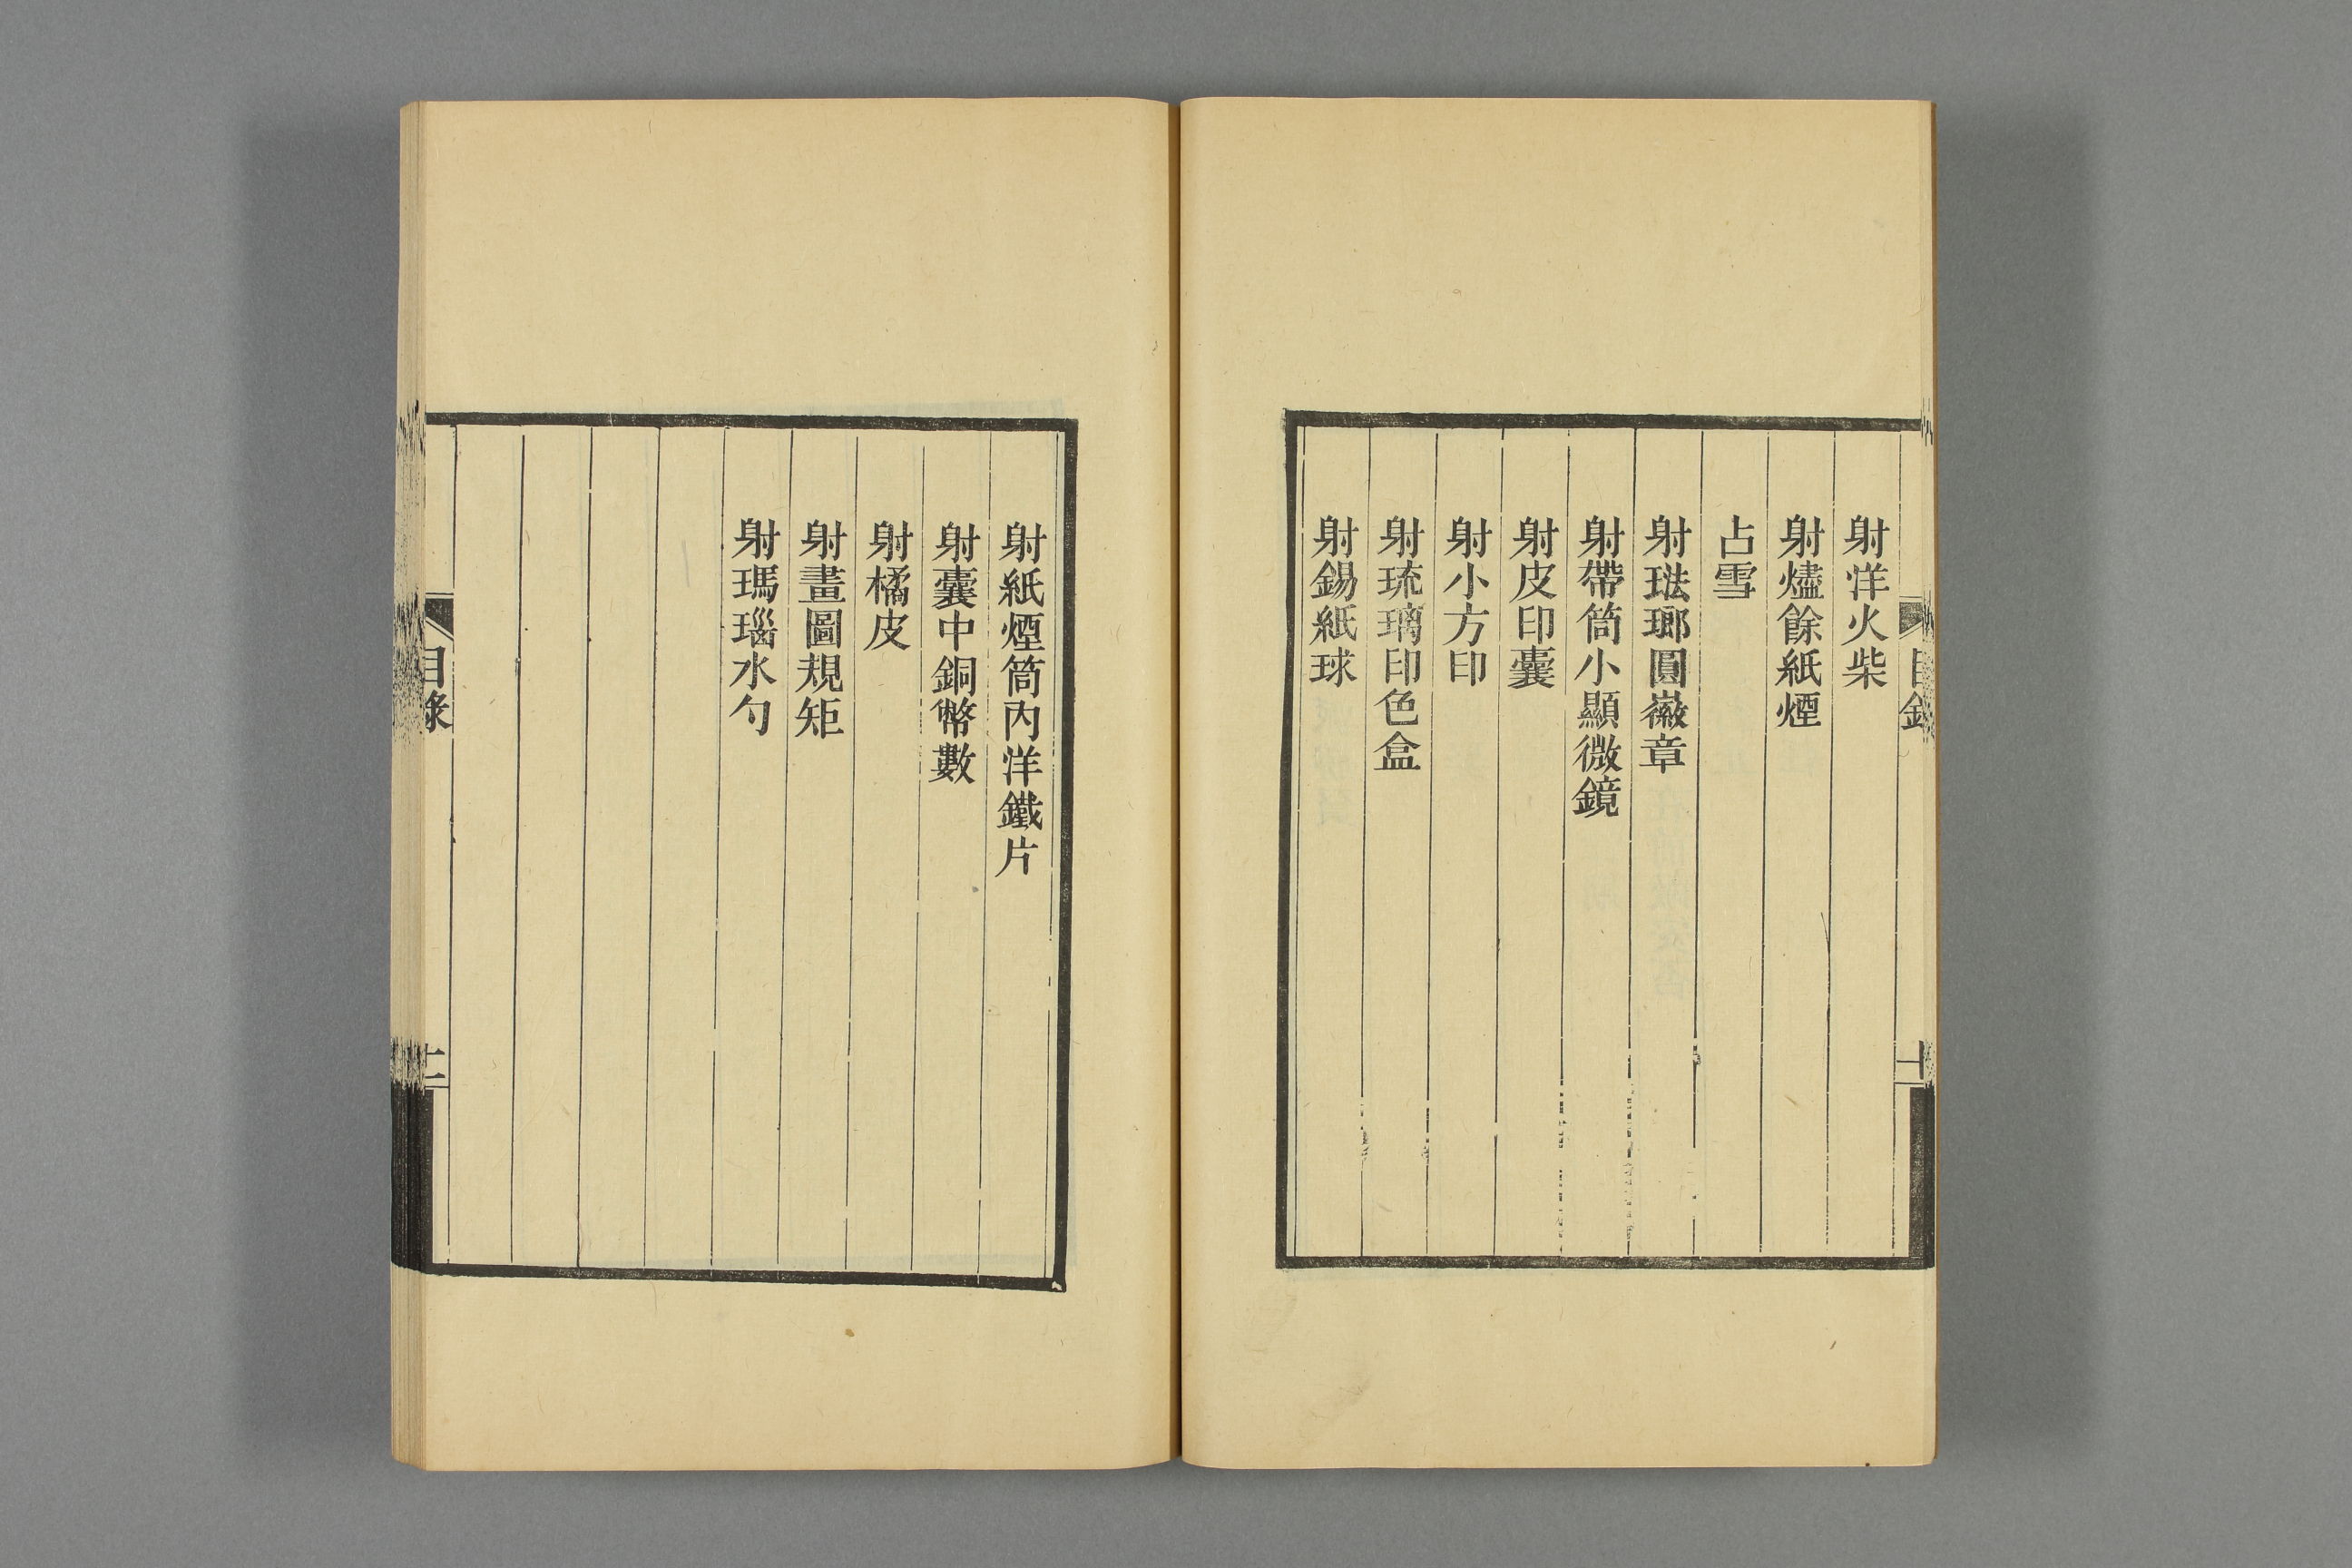 射洋火柴
射燼餘紙煙
占雪
射琺瑯圓徽章
射帶筒小顯微鏡
射皮印囊
射小方印
射琉璃印色盒
射錫紙球
射紙煙筒內洋鐵片
射囊中銅幣數
射橘皮
射畫圖規矩
射瑪瑙水勺
目錄